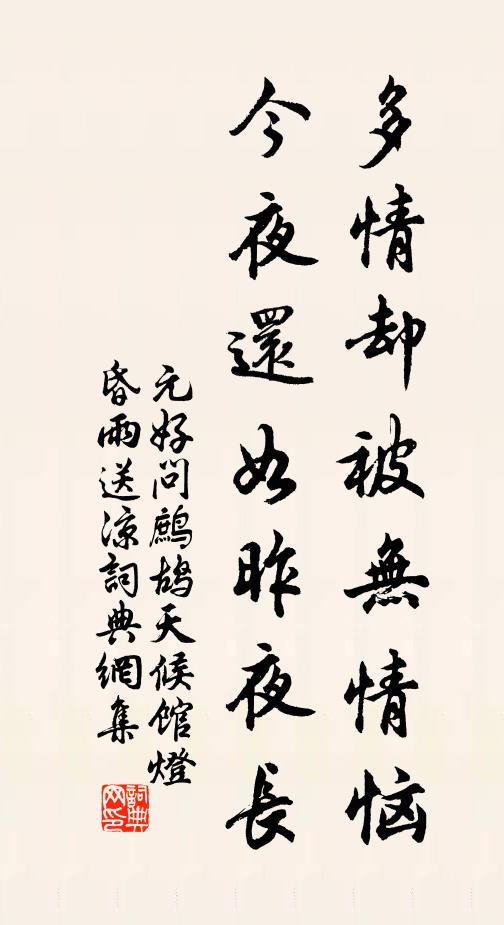 多情却被無情恼
今夜還如昨夜長
元好问鷓鴣天候館燈
昏雨送凉詞典網集
詞典网印